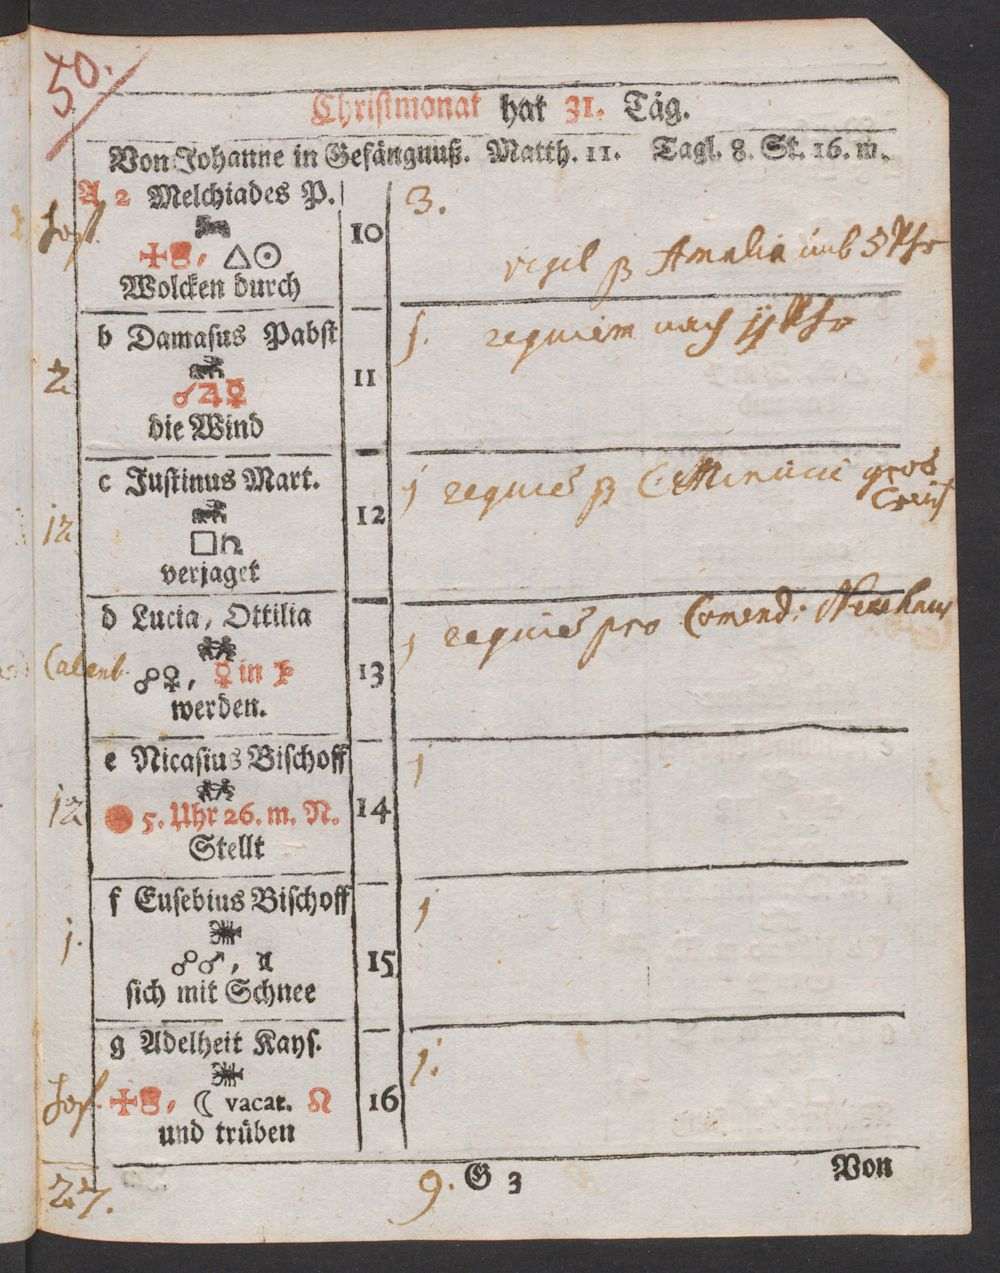 50.
Christmonat hat 31. Täg.
Von Johanne in Gefängnuß. Matth. 11. Tagl. 8. St. 16. m.
A 2 Melchiades P.
10
3.
△☉
Wolcken durch
vigil Amalia umb 5 Uhr
b Damasus Pabst
2
11
1. requiem nach Uhr
♂♃☿
die Wind
c Justinus Mart.
12
12
1 requiem gros
Creutz
□♄
verjaget
d Lucia, Ottilia
Calend.
13
1 requiem pro Comend: Newhaus
☍♀, ☿ in
werden.
e Nicasius Bischoff
12
14
1
5. Uhr 26. m. N.
Stellt
f Eusebius Bischoff
1.
15
1
☍♂,
sich mit Schnee
g Adelheit Kays.
16
1.
☾ vacat. ☊
und trüben
27.
9. G 3
Von